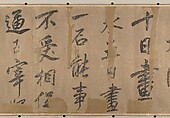 十日畫
水五日畫
一石能事
不受相促
迫王宰